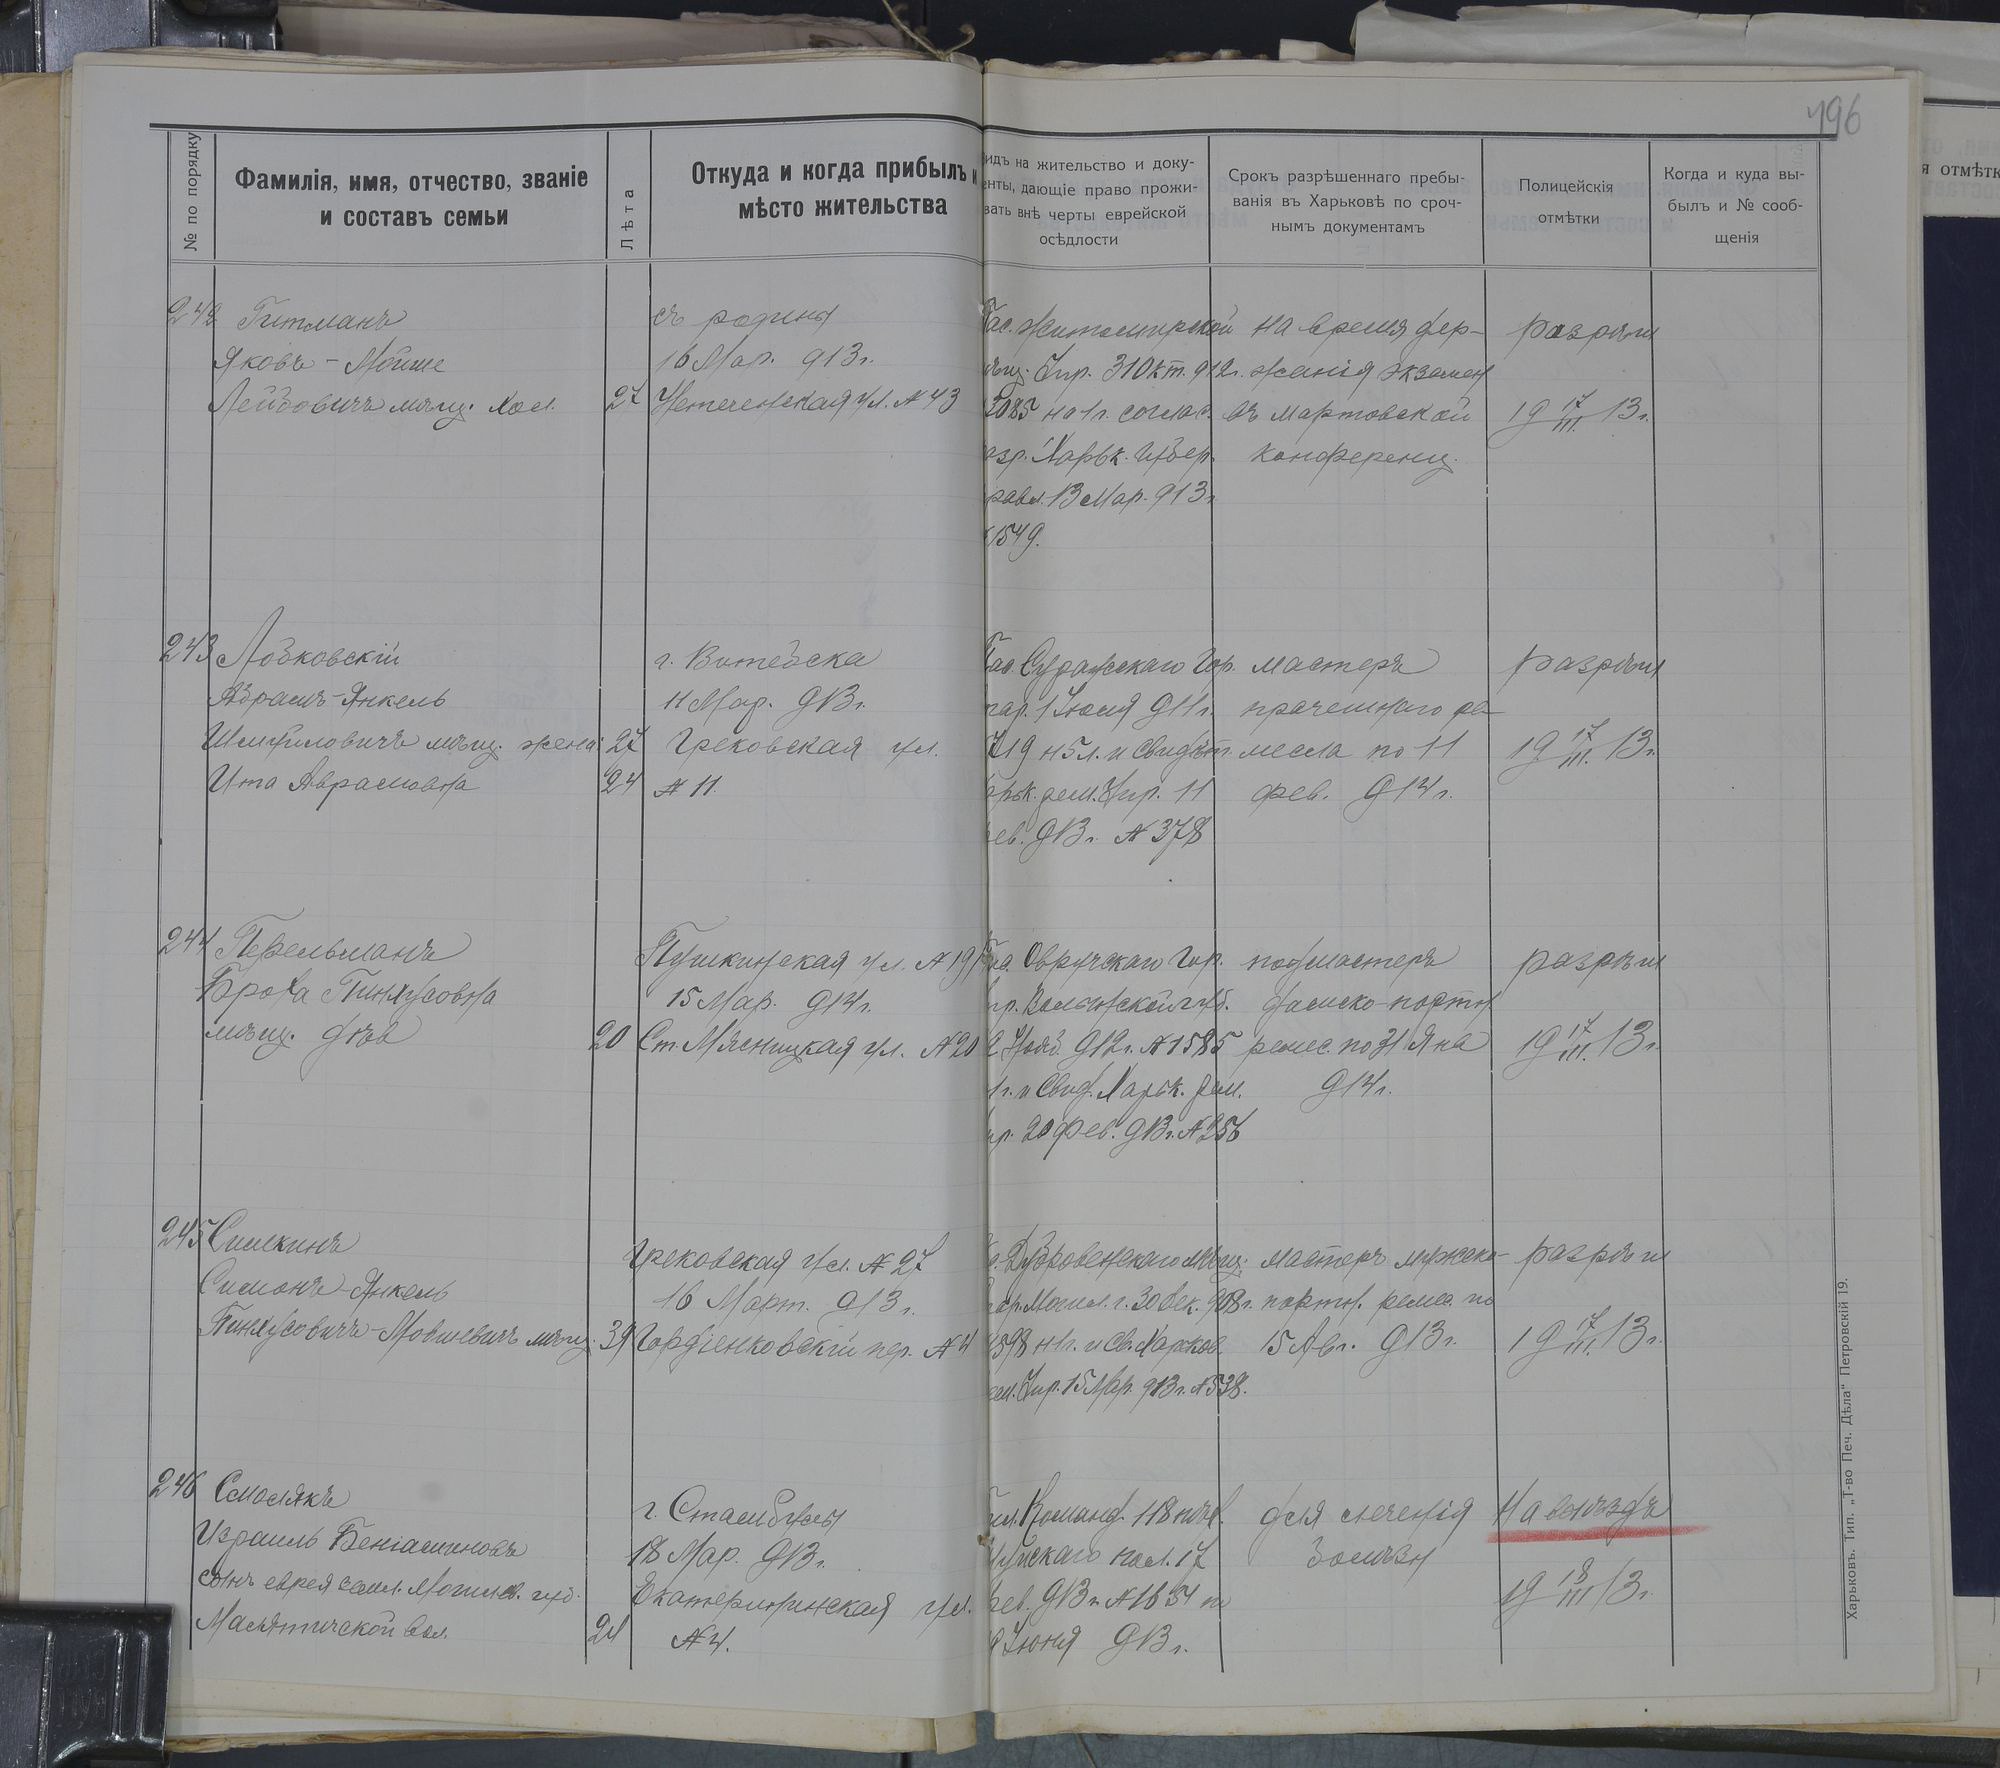 196
№ по порядку
Фамилія, имя, отчество, званіе
и составъ семьи
Лѣта
Откуда и когда прибылъ и
мѣсто жительства
идъ на жительство и доку-
енты, дающіе право прожи-
вать внѣ черты еврейской
осѣдлости
Срокъ разрѣшеннаго пребы-
ванія въ Харьковѣ по сроч-
нымъ документамъ
Полицейскія
отмѣтки
Когда и куда вы-
былъ и № сооб-
щенія
я отмѣтк
242 Гитманъ
Яковъ-Мойше
Лейбовичъ мѣщ. хол. 27
съ родины
16 Мар. 913 г.
Нетеченская ул. № 43
Пас. Житомирской
мѣщ. Упр. 31 Окт. 912 г.
на 1 г. соглас.
разр. Харьк. Губер.
Правл. 13 Мар. 913 г.
1549.
на время дер-
жанія экзамен
въ мартовской
конференц.
разрѣш
19 17/III 13 г.
243 Лобковскій
Абрамъ-Янкель
мѣщ. жена 27
Ита Аврамовна 24
г. Витебска
11 Мар. 913 г.
Грековская ул.
№ 11
Пас. Суражскаго Гор.
стар. 1 Іюля 911 г.
719 н 5 л. и Свидѣт.
Харьк. рем. Упр. 11
фев. 913 г. № 378
мастеръ
прачешнаго ре-
месла по 11
фев. 914 г.
разрѣш
19 17/III 13 г.
244 Перельманъ
Броха Пинхусовна
мѣщ. дѣв 20
Пушкинская ул. № 19
15 Мар. 914 г.
Ст. Мясницкая ул. № 20
Пас. Овручскаго Гор.
упр. Волынской губ.
2 Нояб. 912 г. № 1585
1 г. и Свид. Харьк. рем.
упр. 20 фев. 913 г. № 256
подмастеръ
дамско-портн
ремес. по 31 Янв
914 г.
разрѣш
19 17/III 13 г.
245 Симкинъ
Симонъ-Янкель
Пинхусовичъ-Мовшевичъ мѣщ. 39
Грековская ул. № 27
16 Март. 913 г.
Гордіенковскій пер. № 4
Дубровенскаго мѣщ.
стар. Могил. г. 30 Дек. 908 г.
н 1 г. и Св. Харьков.
рем. Упр. 15 Мар. 913 г. № 538.
мастеръ мужско-
портн. ремес. по
5 Авг. 913 г.
разрѣш
19 17/III 13 г.
246 Смолякъ
Израиль Беніаминовъ
сынъ еврея земл. Могилев. губ.
вол. 21
г. Стамбулы
18 Мар. 913 г.
Екатерининская ул.
№ 4.
Команд. 118 пѣх.
Шуйскаго пол. 17
фев. 913 г. № 1634 по
Іюня 913 г.
для леченія
болѣзн
На выѣздъ
19 18/III 13 г.
Харьковъ. Тип. „Т-во Печ. Дѣла“ Петровскій 19.